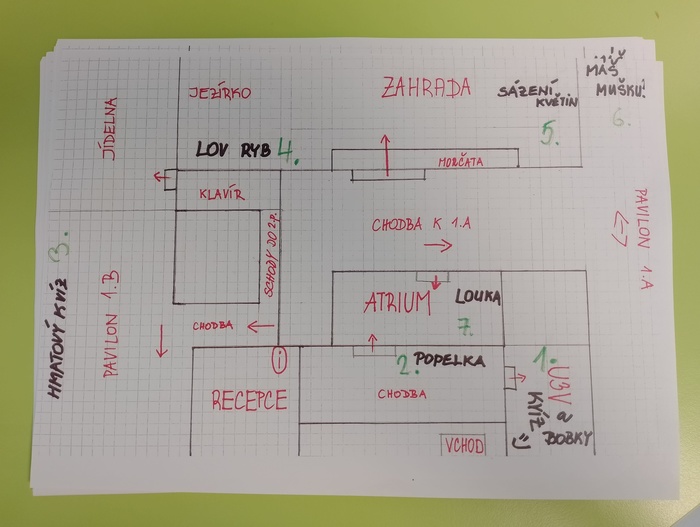 JEZÍRKO
ZAHRADA
SÁZENÍ
KVĚTIN
5.
MÁŠ
MUŠKU!
6.
JÍDELNA
LOV RYB 4.
MORČATA
KLAVÍR
SCHODY DO 2.P.
CHODBA K 1.A
PAVILON 1.A
HMATOVÝ KVÍZ 3.
PAVILON 1.B
CHODBA
ATRIUM
LOUKA
7.
i
RECEPCE
2. POPELKA
CHODBA
VCHOD
1. U3V a
KVÍZ
BOBKY